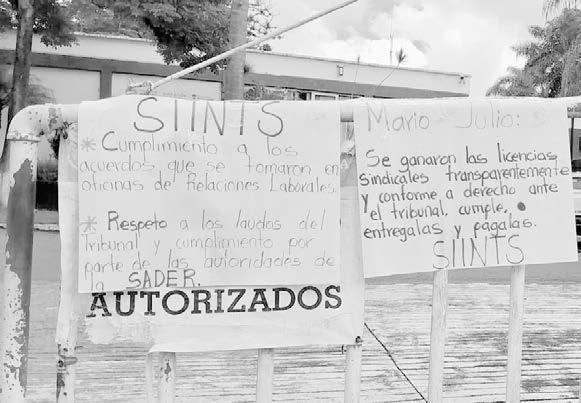 SIINTS
* Cumplimiento a los
acuerdos que se tomaron en
oficinas de Relaciones Laborales.
* Respeto a los laudos del
Tribunal y cumplimiento por
parte de las autoridades de
la SADER.
AUTORIZADOS
Mario Julio:
Se ganaron las licencias
sindicales transparentemente
y conforme a derecho ante
el tribunal, cumple,
entregalas y pagalas.
SIINTS